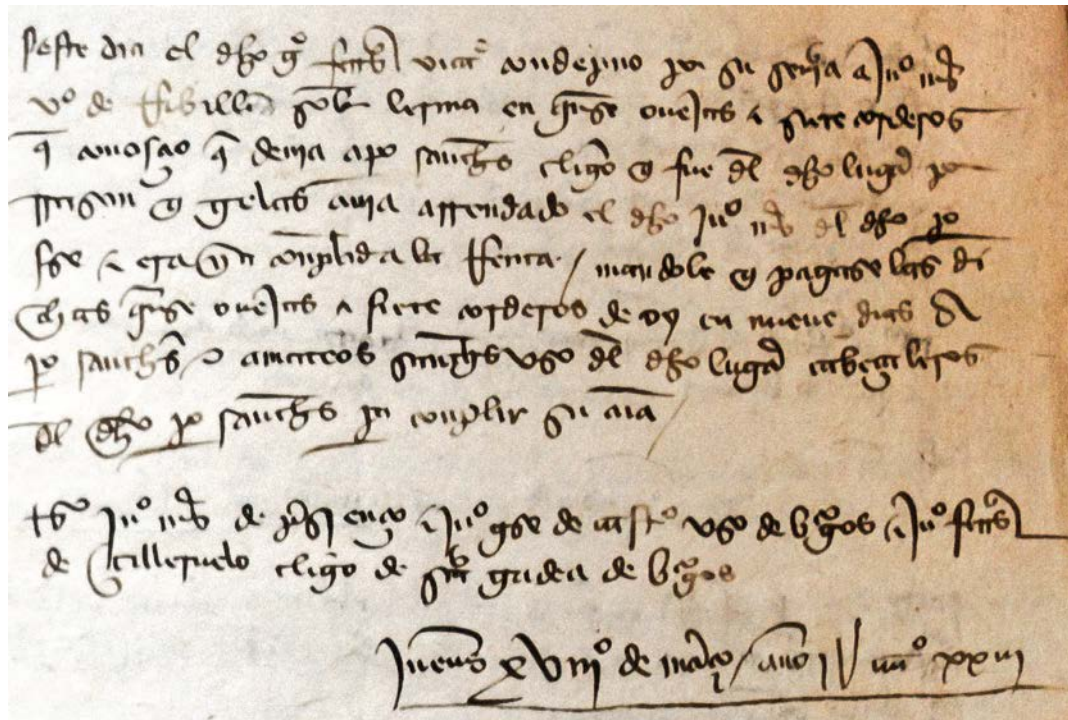 Este dia el dho gº ferrs vicº condepno por su sentençia a Juº mrs
vº de Rebilla sobre lerma en qinse ovejas e siete corderos
q conosçio q devia a pº sanchs cligo q fue dl dho lugar por
rason q gelas avia arrendado el dho Juº mrs dl dho pº
sse e era ya conplida la Renta / mandole q pagase las di
chas qinse ovejas e siete corderos de oy en nueve dias a
pº sanchs e a mateos sanchs vso dl dho lugar cabeçaleros
dl dho pº sanchs pa conplir su aia
tsº Juº mrs de e Juº gse de castº vso de burgos e Juº ferrs
de cligo de sta gadea de burgos
Jueves XVIIIº de março año IV XXIII